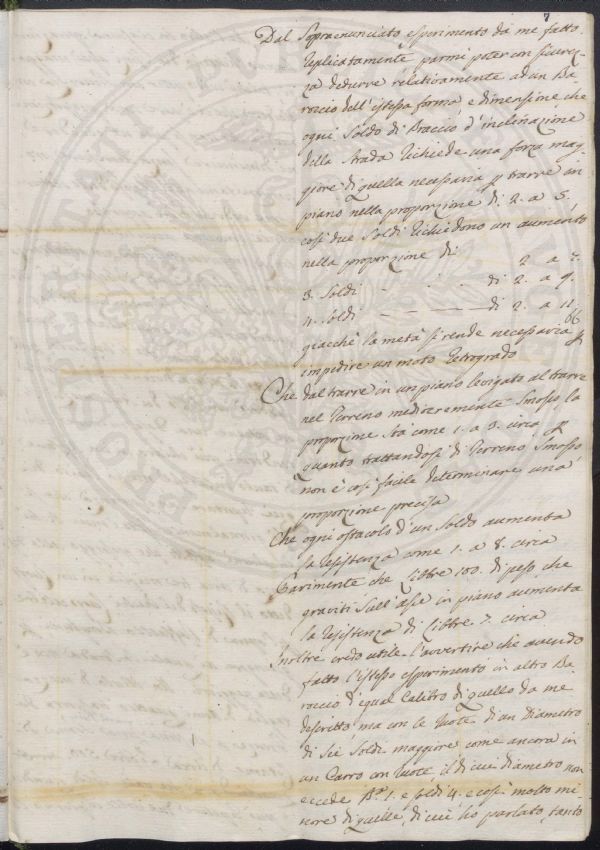 7
Dal Sopraenunciato esperimento da me fatto
replicatamente parmi poter con sicurez-
za dedurre relativamente ad un Ba-
roccio dell'istessa forma e dimensione che
ogni Soldo di Braccio d'inclinazione
della Strada richiede una forza mag-
giore di quella necessaria p trarre in
piano nella proporzione di 2. a 5.
così due Soldi richiedono un aumento
nella proporzione di 2. a 7.
3. Soldi - - - di 2. a 9.
4. Soldi - - - di 2. a 11.
giacchè la metà si rende necessaria p
impedire un moto retrogrado
Che dal trarre in un piano levigato al trarre
nel Terreno mediocremente Smosso la
proporzione Stà come 1. a 3. circa p
quanto trattandosi di Terreno Smosso
non è così facile determinare una
proporzione precisa
Che ogni ostacolo d'un Soldo aumenta
la resistenza come 1. a 8. circa
Parimente che Libbre 100. di peso che
graviti Sull'asse in piano aumenta
la resistenza di Libbre 7. circa
Inoltre credo utile l'avvertire che avendo
fatto l'istesso esperimento in altro Ba-
roccio d'egual Calibro di quello da me
descritto ma con le Ruote d'un Diametro
di Sei Soldi maggiore come ancora in
un Carro con Ruote il di cui diametro non
eccede Ba. 1. e Soldi 4. e così molto mi-
nore di quelle, di cui ho parlato, tanto